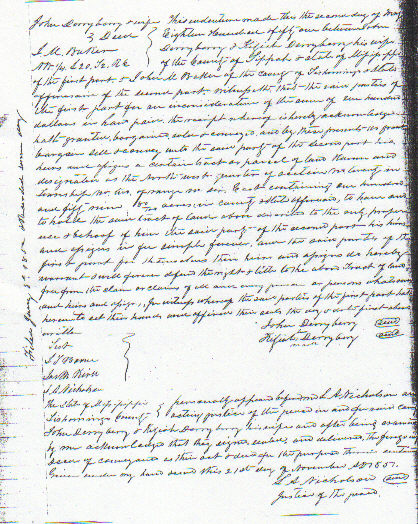 John Derryberry & wife This indenture made this the second day of May
& Deed Eighteen Hundred & fifty one between John
J. M. Baker Derryberry & his wife
of the County of Tippah & State of Mississippi
of the first part & J. M. Baker of the County of Tishomingo & State
aforesaid of the second part, witnesseth that the said parties of
the first part for and in consideration of the sum of one hundred
dollars in hand paid, the receipt whereof is hereby acknowledged
hath granted bargained, sold & conveyed and by these presents do grant
bargain sell & convey unto the said party of the second part his
heirs and assigns a certain tract or parcel of land known and
designated as the North west quarter of section No twenty
township No six, of range No six East containing one hundred
and fifty nine acres in county & State aforesaid, to have and
to hold the said tract of land above described to the only proper
use & behoof of him the said party of the second part his heirs
and assigns in fee simple forever, and the said parties of the
first part for themselves their heirs and assigns do hereby
warrant & will forever defend the right & title to the above Tract of land
free from the claim or claims of all and every person or persons whatsoever
and heirs and assigns, In witness whereof the said parties of the first part hath
hereunto set their hands and affixed their seals the day & date first above
written
Test John Derryberry seal
Derryberry seal
mark
L A Nicholson
The State of Mississippi personally appeared before me L A Nicholson an
Tishomingo County acting justice of the peace in and for said County
John Derryberry & Derryberry his wife and after being examined
by me acknowledged that they signed, sealed, and delivered, the foregoing
deed of conveyance as their act & deed for the purpose therein
Given under my hand and seal this 21st day of November AD 1851.
L A Nicholson seal
Justice of the peace